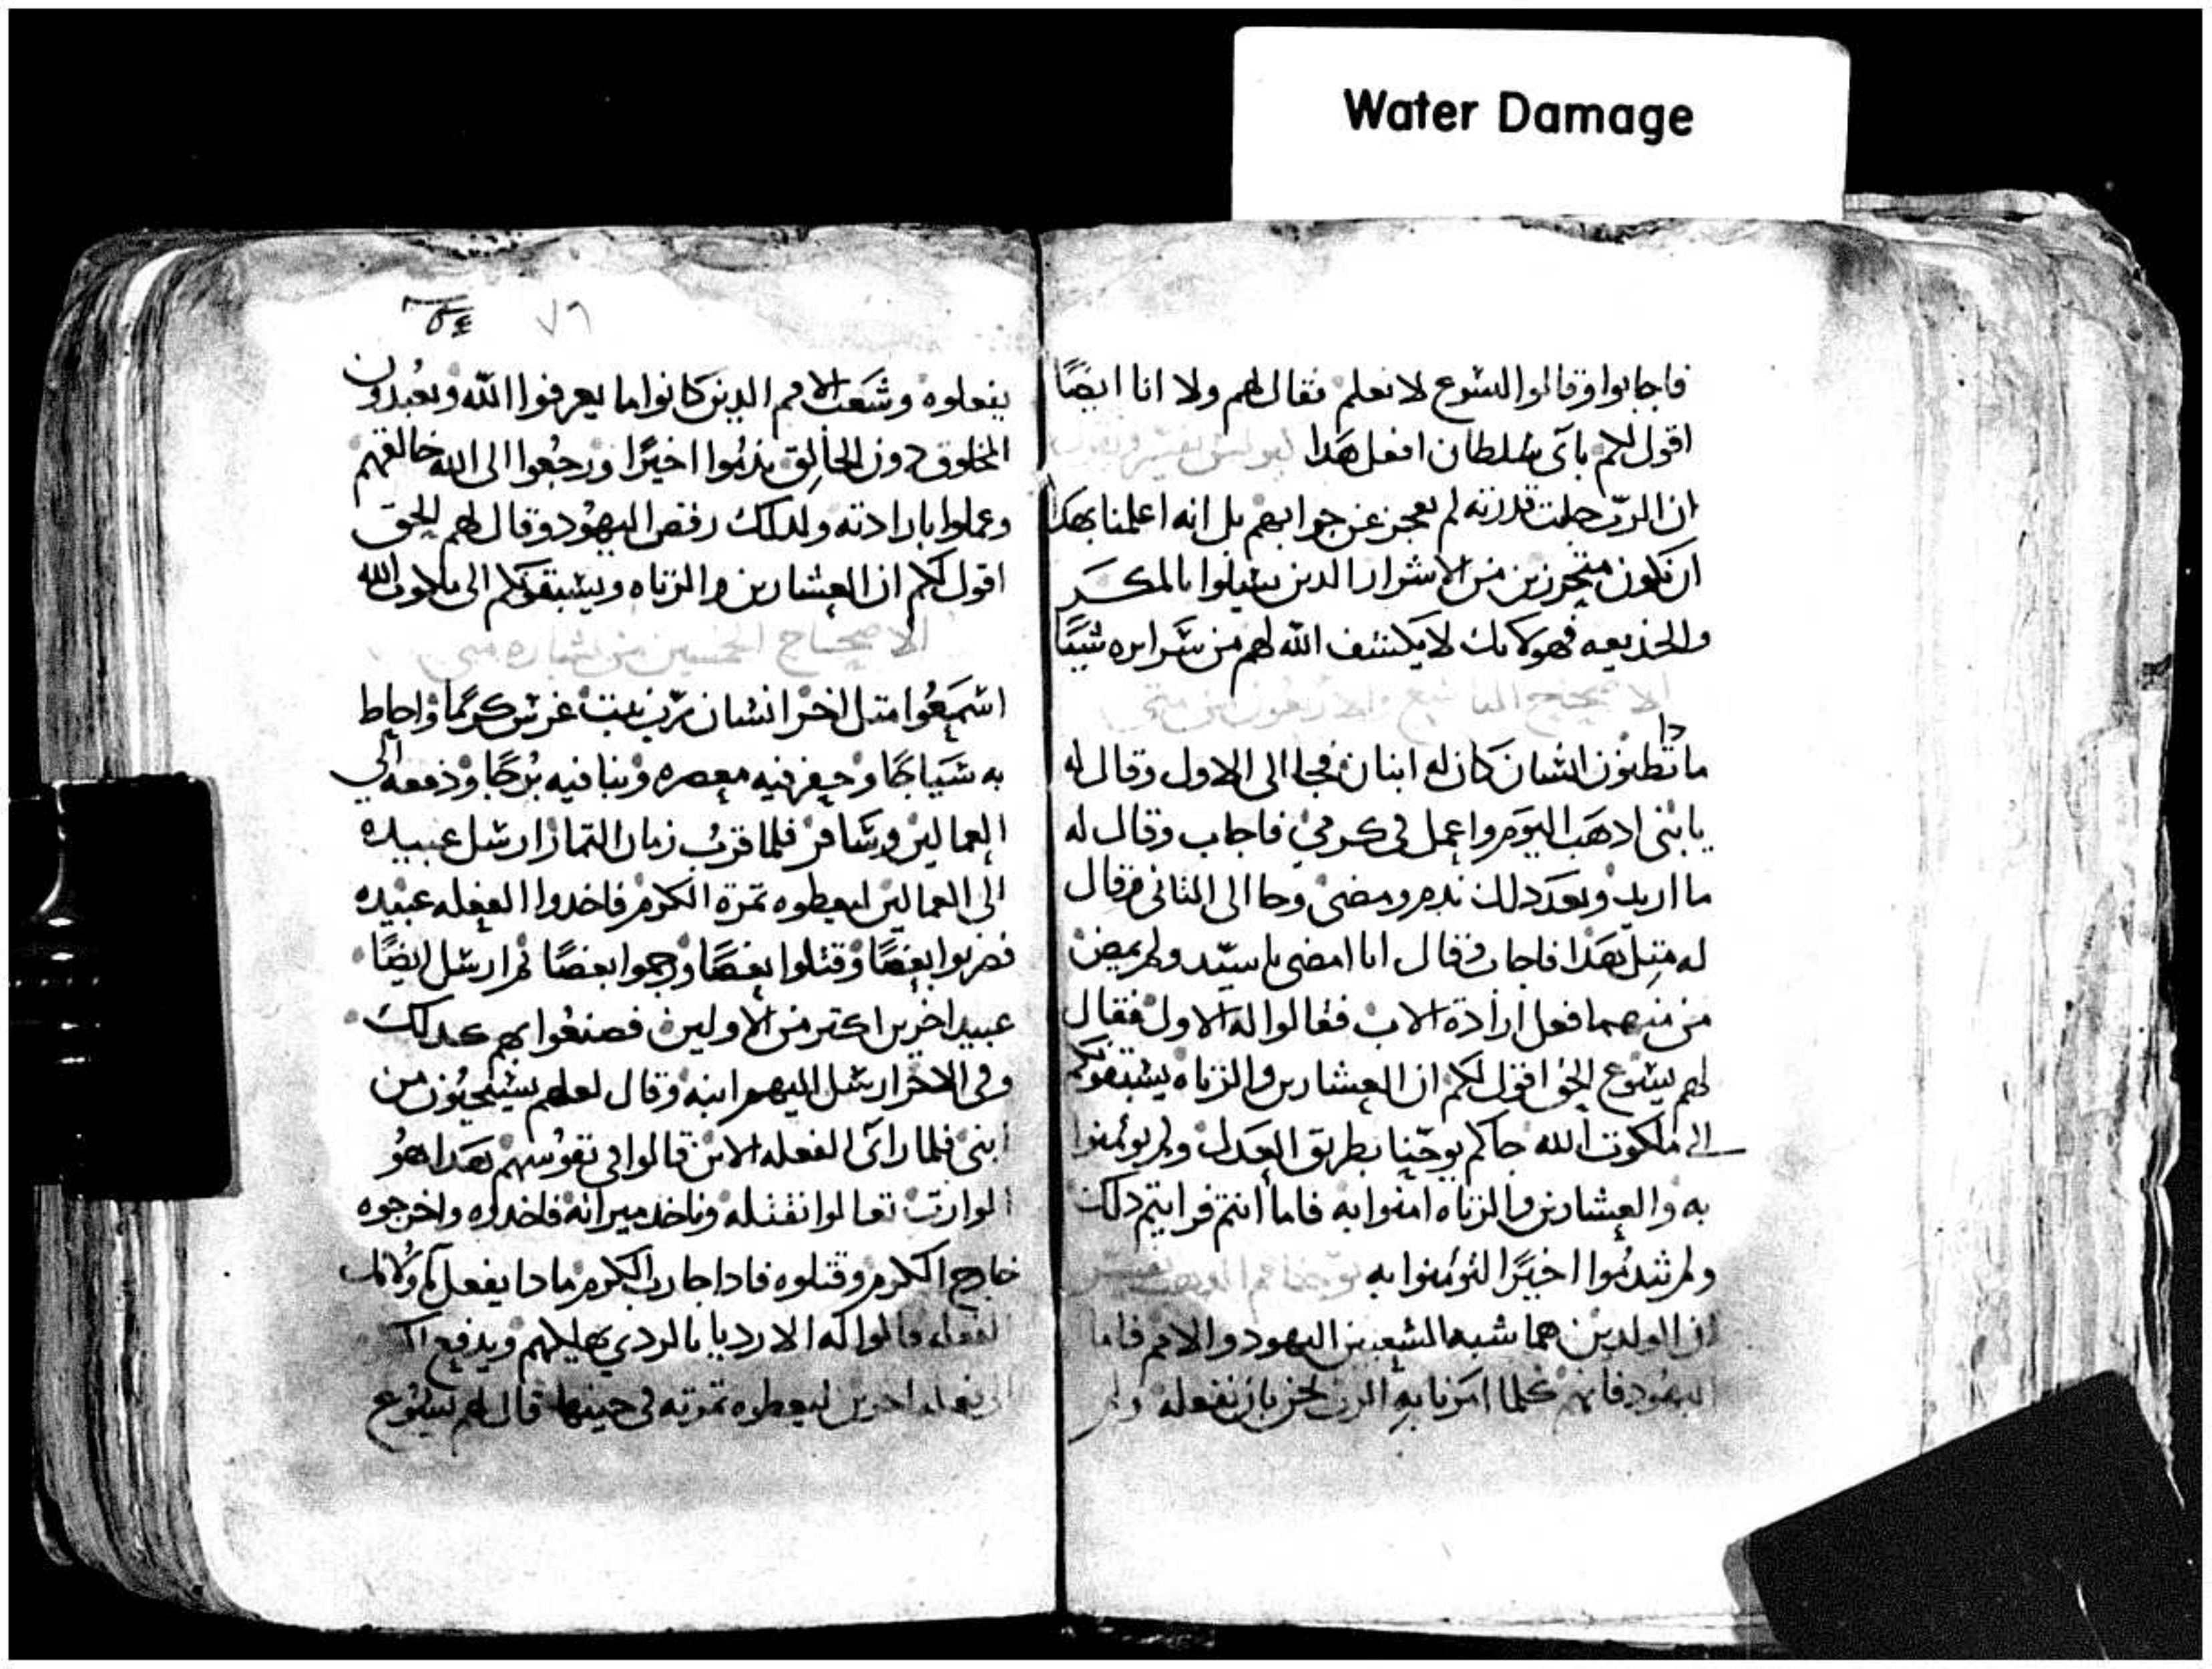 Water Damage
فاجابوا وقالوا اليسوع لا نعلم فقال لهم ولا انا ايضًا
اقول لكم باى سلطان افعل هدا
ان الربّ جلت قدرته لم يعجز عن جوابهم بل انه اعلمنا بهدا
ان نكون متحرزين من الاشرار الدين يسيلوا بالمكر
والخديعه فهولايك لا يكشف الله لهم من سَرايره شيئًا
الاصحاح التاسع والاربعون من متى
مادا تظنون انسان كان له ابنان فجا الى الاول وقال له
يا بنى ادهب اليوم واعمل فى كرمي فاجاب وقال له
ما اريد وبعد دلك ندم ومضى وجا الى التانى وقال
له متل هدا فاجاب وقال انا امضى يا سيّد ولم يمض
من منهما فعل ارادة الاب فقالوا له الاول فقال
لهم يسوع الحق اقول لكم ان العشارين والزناه يسبقوكم
الى ملكوت الله جاكم يوحنا بطريق العدل ولم تومنوا
به والعشارين والزناه امنوا به فاما انتم فرايتم دلك
ولم تندموا اخيرًا لتومنوا به
ان الولدين هما شبه الشعبين اليهود والامم فاما
اليهود فانهم كلما امرنا به الرب نحن بان نفعله ولم
٧٦
يفعلوه وشعب الامم الدين كانوا ما يعرفوا الله ويعبدون
المخلوق دون الخالق ندموا اخيرًا ورجعوا الى الله خالقهم
وعملوا بارادته ولدلك رفض اليهود وقال لهم الحق
اقول لكم ان العشارين والزناه ويسبقوكم الى ملكوت الله
الاصحاح الخمسين من بشاره متى
اسمعوا متل اخر انسان ربّ بيت غرس كرمًا واحاط
به سياجًا وحفر فيه معصره وبنا فيه برجًا ودفعه الى
العمالين وسافر فلما قرب زمان التمار ارسل عبيده
الى العمالين ليعطوه تمرة الكرم فاخدوا الفعله عبيده
فضربوا بعضًا وقتلوا بعضًا ورجموا بعضًا تم ارسل ايضًا
عبيد اخرين اكتر من الاولين فصنعوا بهم كدلك
وفى الاخر ارسل اليهم ابنه وقال لعلهم يستحيون من
ابنى فلما راى الفعله الابن قالوا فى نفوسهم هدا هو
الوارت تعالوا نقتله وناخد ميراته فاخدوه واخرجوه
خارج الكرم وقتلوه فادا جا رب الكرم مادا يفعل باولايك
الفعله قالوا له الارديا بالردي يهلكهم ويدفع
الى فعله اخرين ليعطوه تمرته فى حينها قال لهم يسوع